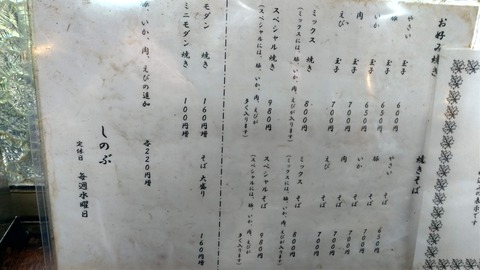 お好み焼き
やさい 玉子 600円
豚 玉子 650円
いか 玉子 650円
肉 玉子 700円
えび 玉子 700円
ミックス 焼き 800円
(ミックスには、豚、いか、肉、えびが入ります)
スペシャル 焼き 980円
(スペシャルには、豚、いか、肉、えびが
多く入ります)
焼きそば
やさい そば
豚 そば 650円
いか そば 700円
肉 そば 700円
えび そば 700円
ミックス そば 800円
(ミックスには、豚、いか、肉、えびが入ります)
スペシャル そば 980円
(スペシャルには、豚、いか、肉、えびが
多く入ります)
モダン 焼き 160円増
ミニモダン 焼き 100円増
そば 大盛り 160円増
いか、肉、えびの追加 各220円増
しのぶ
定休日 毎週水曜日